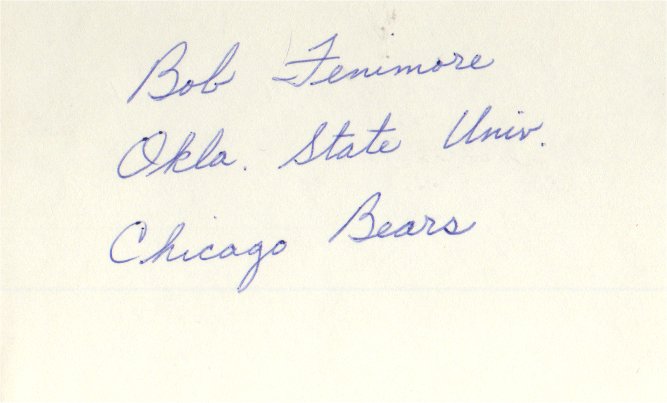 Bob Fenimore
Okla. State Univ.
Chicago Bears